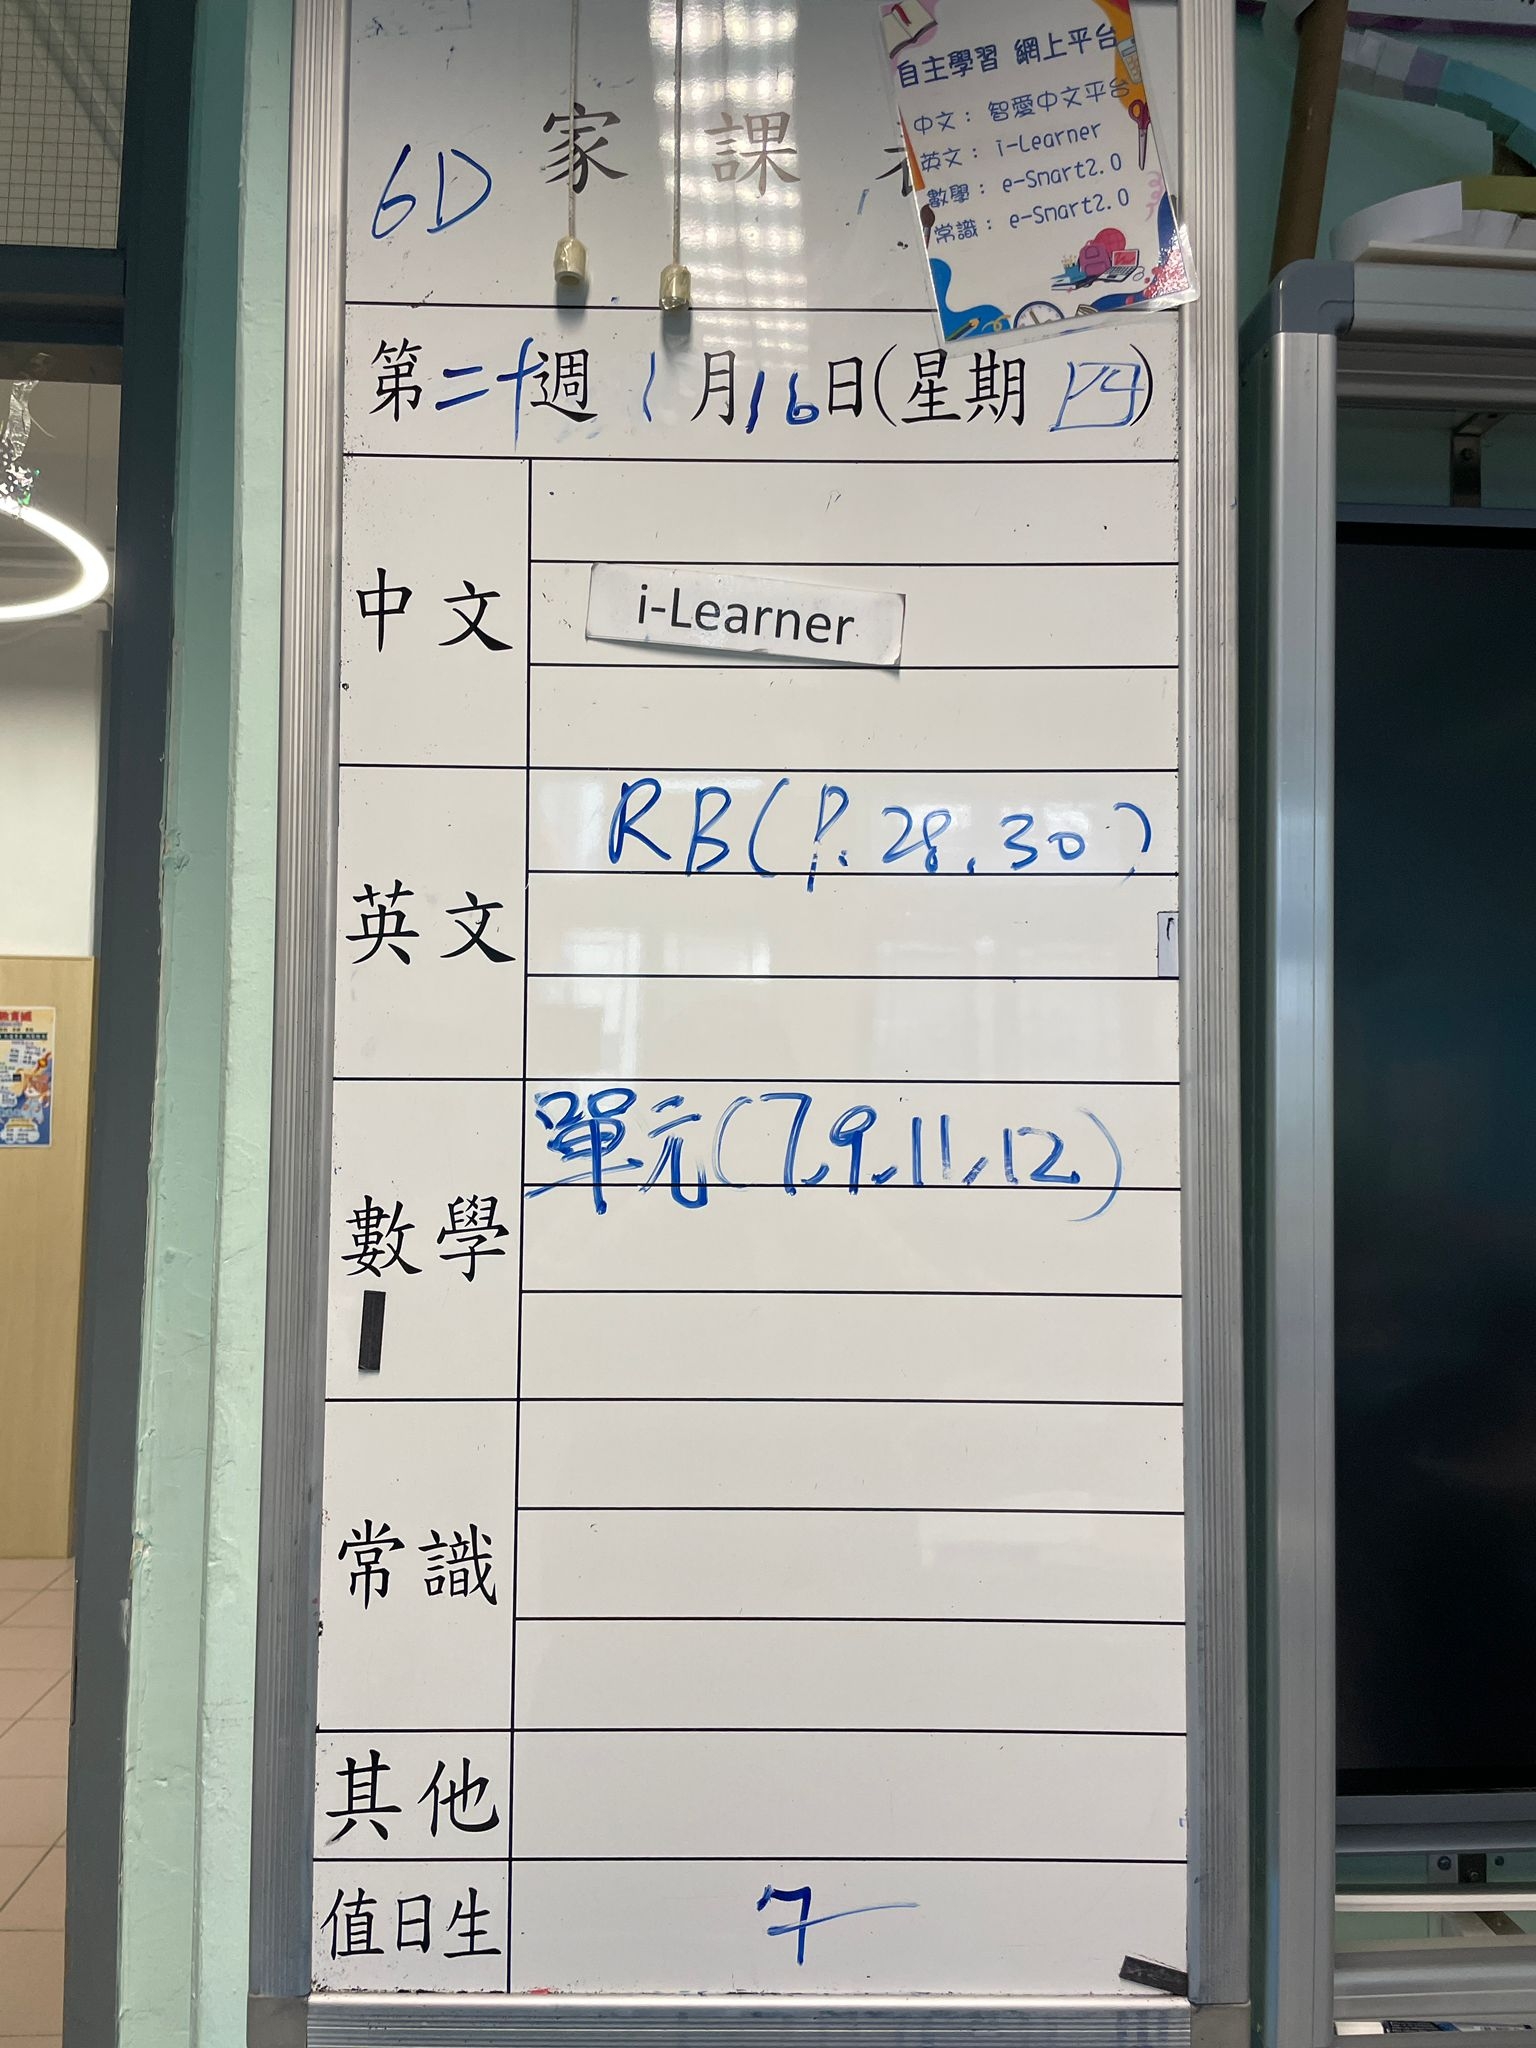 自主學習 網上平台
中文： 智愛中文平台
英文： i-Learner
數學： e-Smart2.0
常識： e-Smart2.0
6D 家 課
第二十週 1月16日(星期四)
中文
i-Learner
英文
RB(P.28,30)
數學
單元(7,9,11,12)
常識
其他
值日生
7